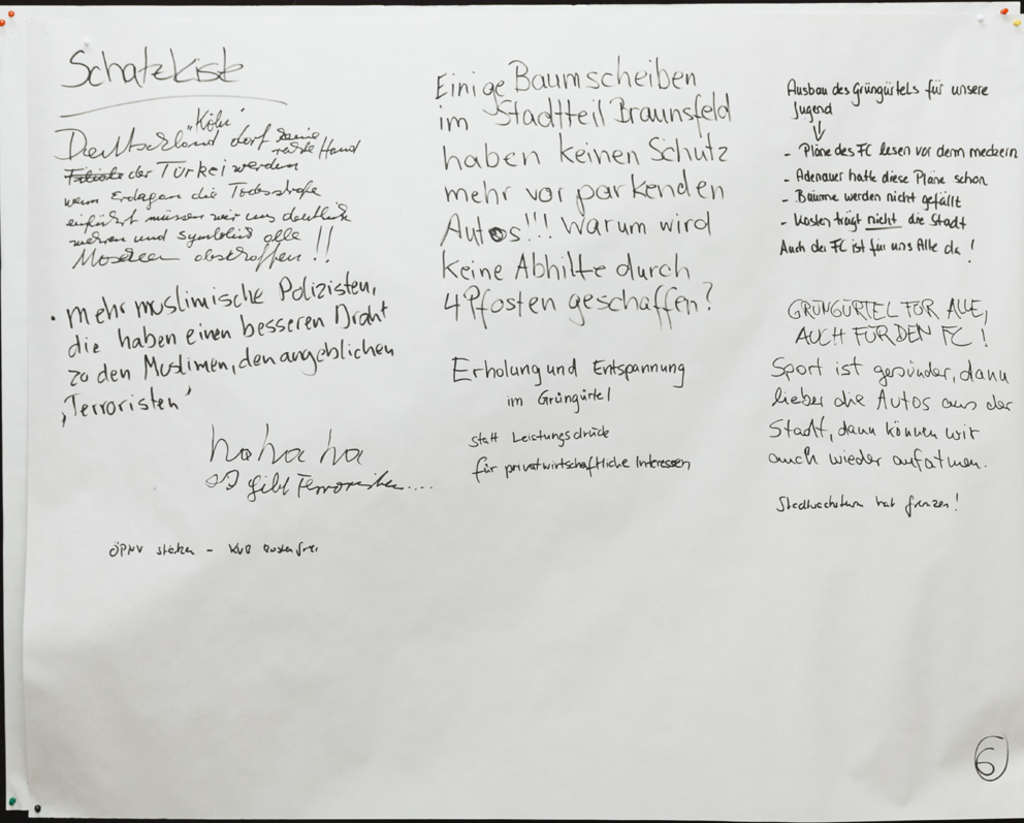 Schatzkiste
"Köln"
Deutschland darf keine
rechte Hand
der Türkei werden
wenn Erdogan die Todesstrafe
einführt müssen wir uns deutlich
wehren und symbolisch alle
Moscheen abschaffen!!
· Mehr muslimische Polizisten,
die haben einen besseren Draht
zo den Muslimen, den angeblichen
,Terroristen'
ha ha ha
es gibt Terroristen....
ÖPNV stärken - KVB kostenfrei
Einige Baumscheiben
im Stadtteil Braunsfeld
haben keinen Schutz
mehr vor parkenden
Autos!!! Warum wird
keine Abhilfe durch
4 Pfosten geschaffen?
Erholung und Entspannung
im Grüngürtel
statt Leistungsdruck
für privatwirtschaftliche Interessen
Ausbau des Grüngürtels für unsere
Jugend
↓
- Pläne des FC lesen vor dem meckern
- Adenauer hatte diese Pläne schon
- Bäume werden nicht gefällt
- Kosten trägt nicht die Stadt
Auch der FC ist für uns Alle da!
GRÜNGÜRTEL FÜR ALLE,
AUCH FÜR DEN FC!
Sport ist gesünder, dann
lieber die Autos aus der
Stadt, dann können wir
auch wieder aufatmen.
Stadtwachstum hat Grenzen!
6